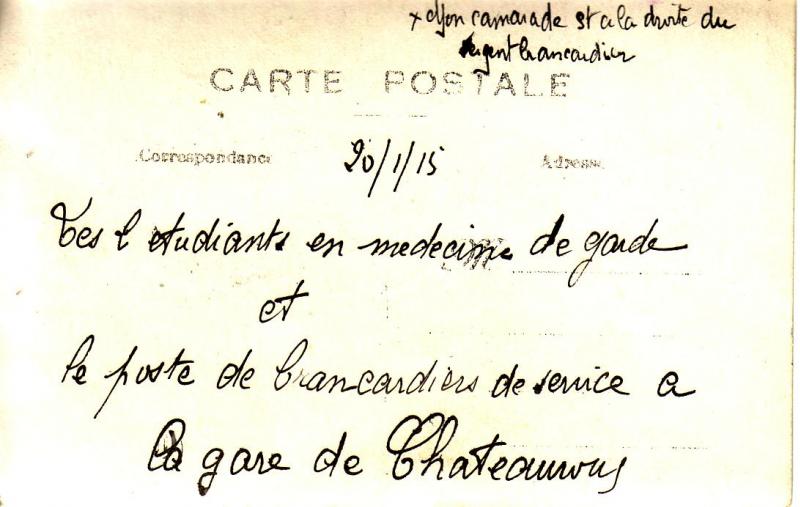 x Mon camarade st a la droite du
sergent brancardier
CARTE POSTALE
Correspondance
20/1/15
Adresse
Les 2 etudiants en medecine de garde
et
le poste de brancardiers de service a
la gare de Chateauroux